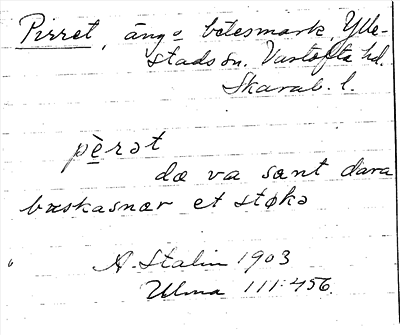 Pirret, äng o betesmark, Ylle-
stads sn. Vartofta hd.
Skarab. l.
pèrət
dæ va sænt dæra
bæskasnær et støkə
A. Stalin 1903
Ulma 111:456.